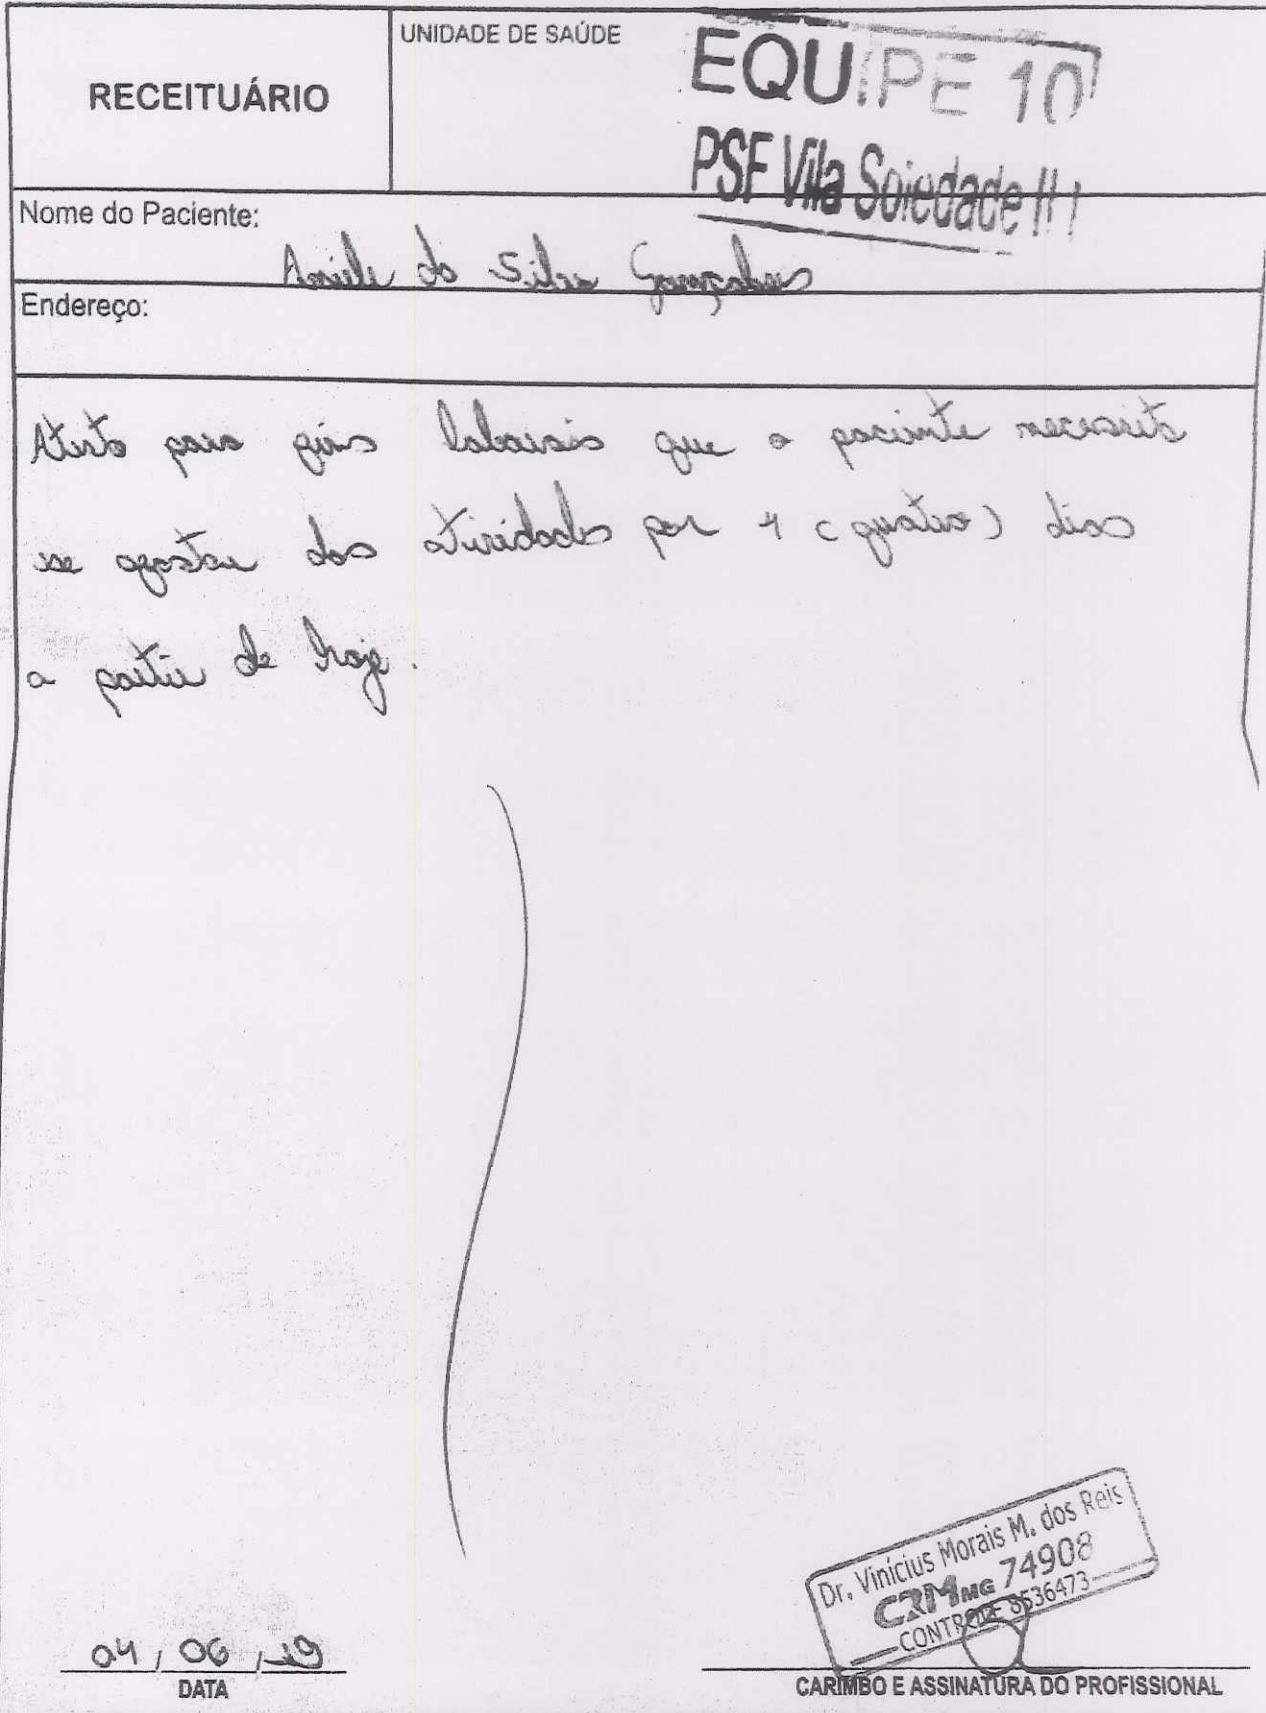 RECEITUÁRIO
UNIDADE DE SAÚDE
EQUIPE 10
PSF Vila Soledade III
Nome do Paciente:
da Silva Gonçalves
Endereço:
Atesto para fins laborais que a paciente necessita
se afastar das atividades por 4 (quatro) dias
a partir de hoje.
Dr. Vinícius Morais M. dos Reis
CRM MG 74908
CONTROLE 8536473
04 / 06 / 19
DATA
CARIMBO E ASSINATURA DO PROFISSIONAL